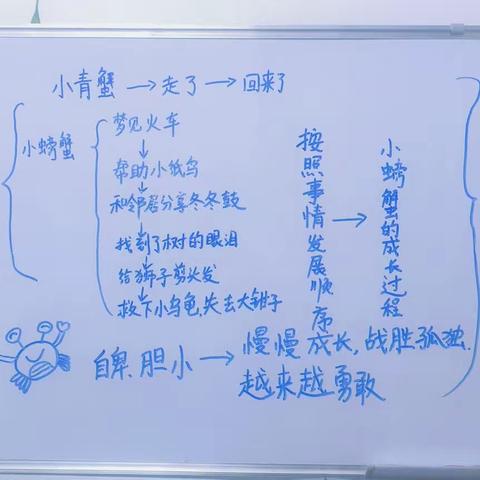 小青蟹→走了→回来了
小螃蟹
梦见火车
↓
帮助小纸鸟
↓
和邻居分享冬冬鼓
↓
找到了树的眼泪
↓
给狮子剪头发
↓
救下小乌龟,失去大钳子
按照事情发展顺序→小螃蟹的成长过程
自卑、胆小→慢慢成长,战胜孤独、
越来越勇敢